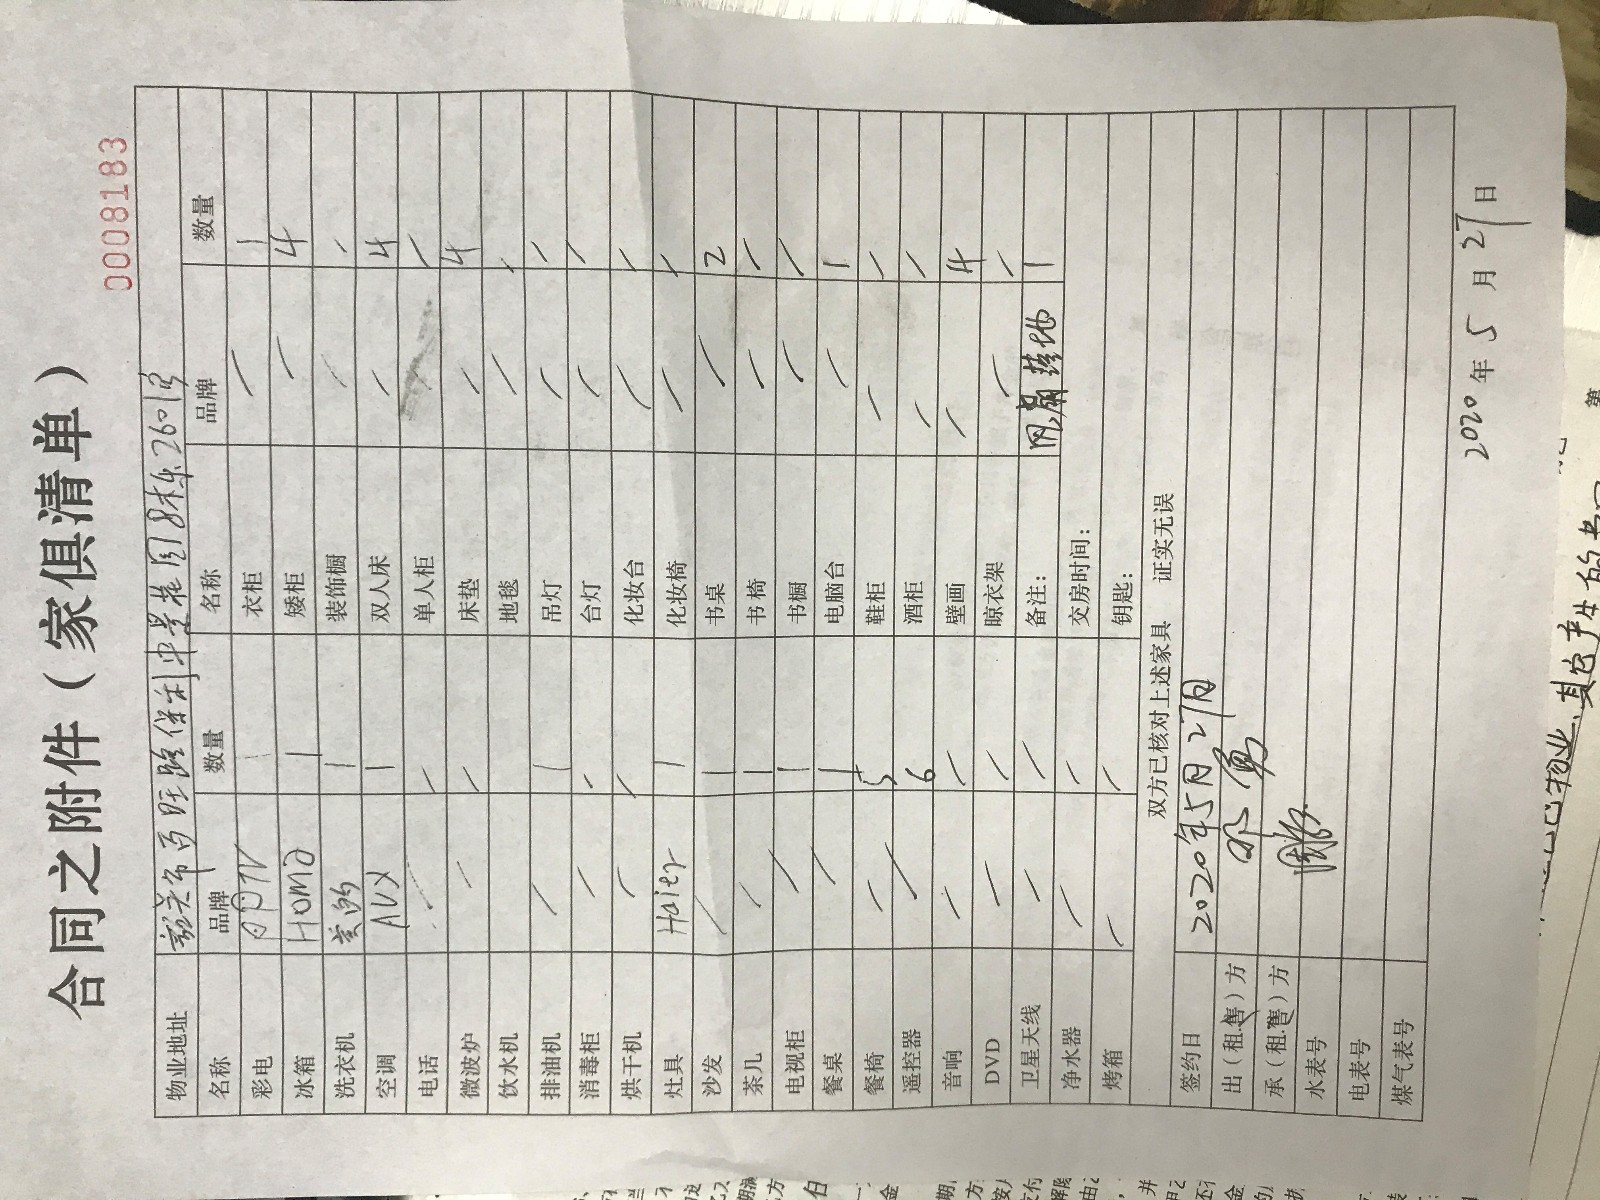 合同之附件（家俱清单）
0008183
物业地址 韶关市百旺路保利中景花园8栋2601号
名称 品牌 数量 名称 品牌 数量
彩电 PPTV 1 衣柜 / 1
冰箱 Homa 1 矮柜 / 4
洗衣机 美的 1 装饰橱 / /
空调 AUX 1 双人床 / 4
电话 / / 单人柜 / /
微波炉 / / 床垫 / 4
饮水机 地毯 / /
排油机 / 1 吊灯 / /
消毒柜 / / 台灯 / /
烘干机 / / 化妆台 / /
灶具 Haier 1 化妆椅 / /
沙发 / 1 书桌 / 2
茶几 / 1 书椅 / /
电视柜 / 1 书橱 / /
餐桌 / 1 电脑台 / 1
餐椅 / 5 鞋柜 / /
遥控器 / 6 酒柜 / /
音响 / / 壁画 / 4
DVD / / 晾衣架 / /
卫星天线 / / 备注： 1
净水器 / / 交房时间：
烤箱 / / 钥匙：
双方已核对上述家具 证实无误
签约日 2020年5月27日
出（租.售）方
承（租.售）方
水表号
电表号
煤气表号
2020年5月27日